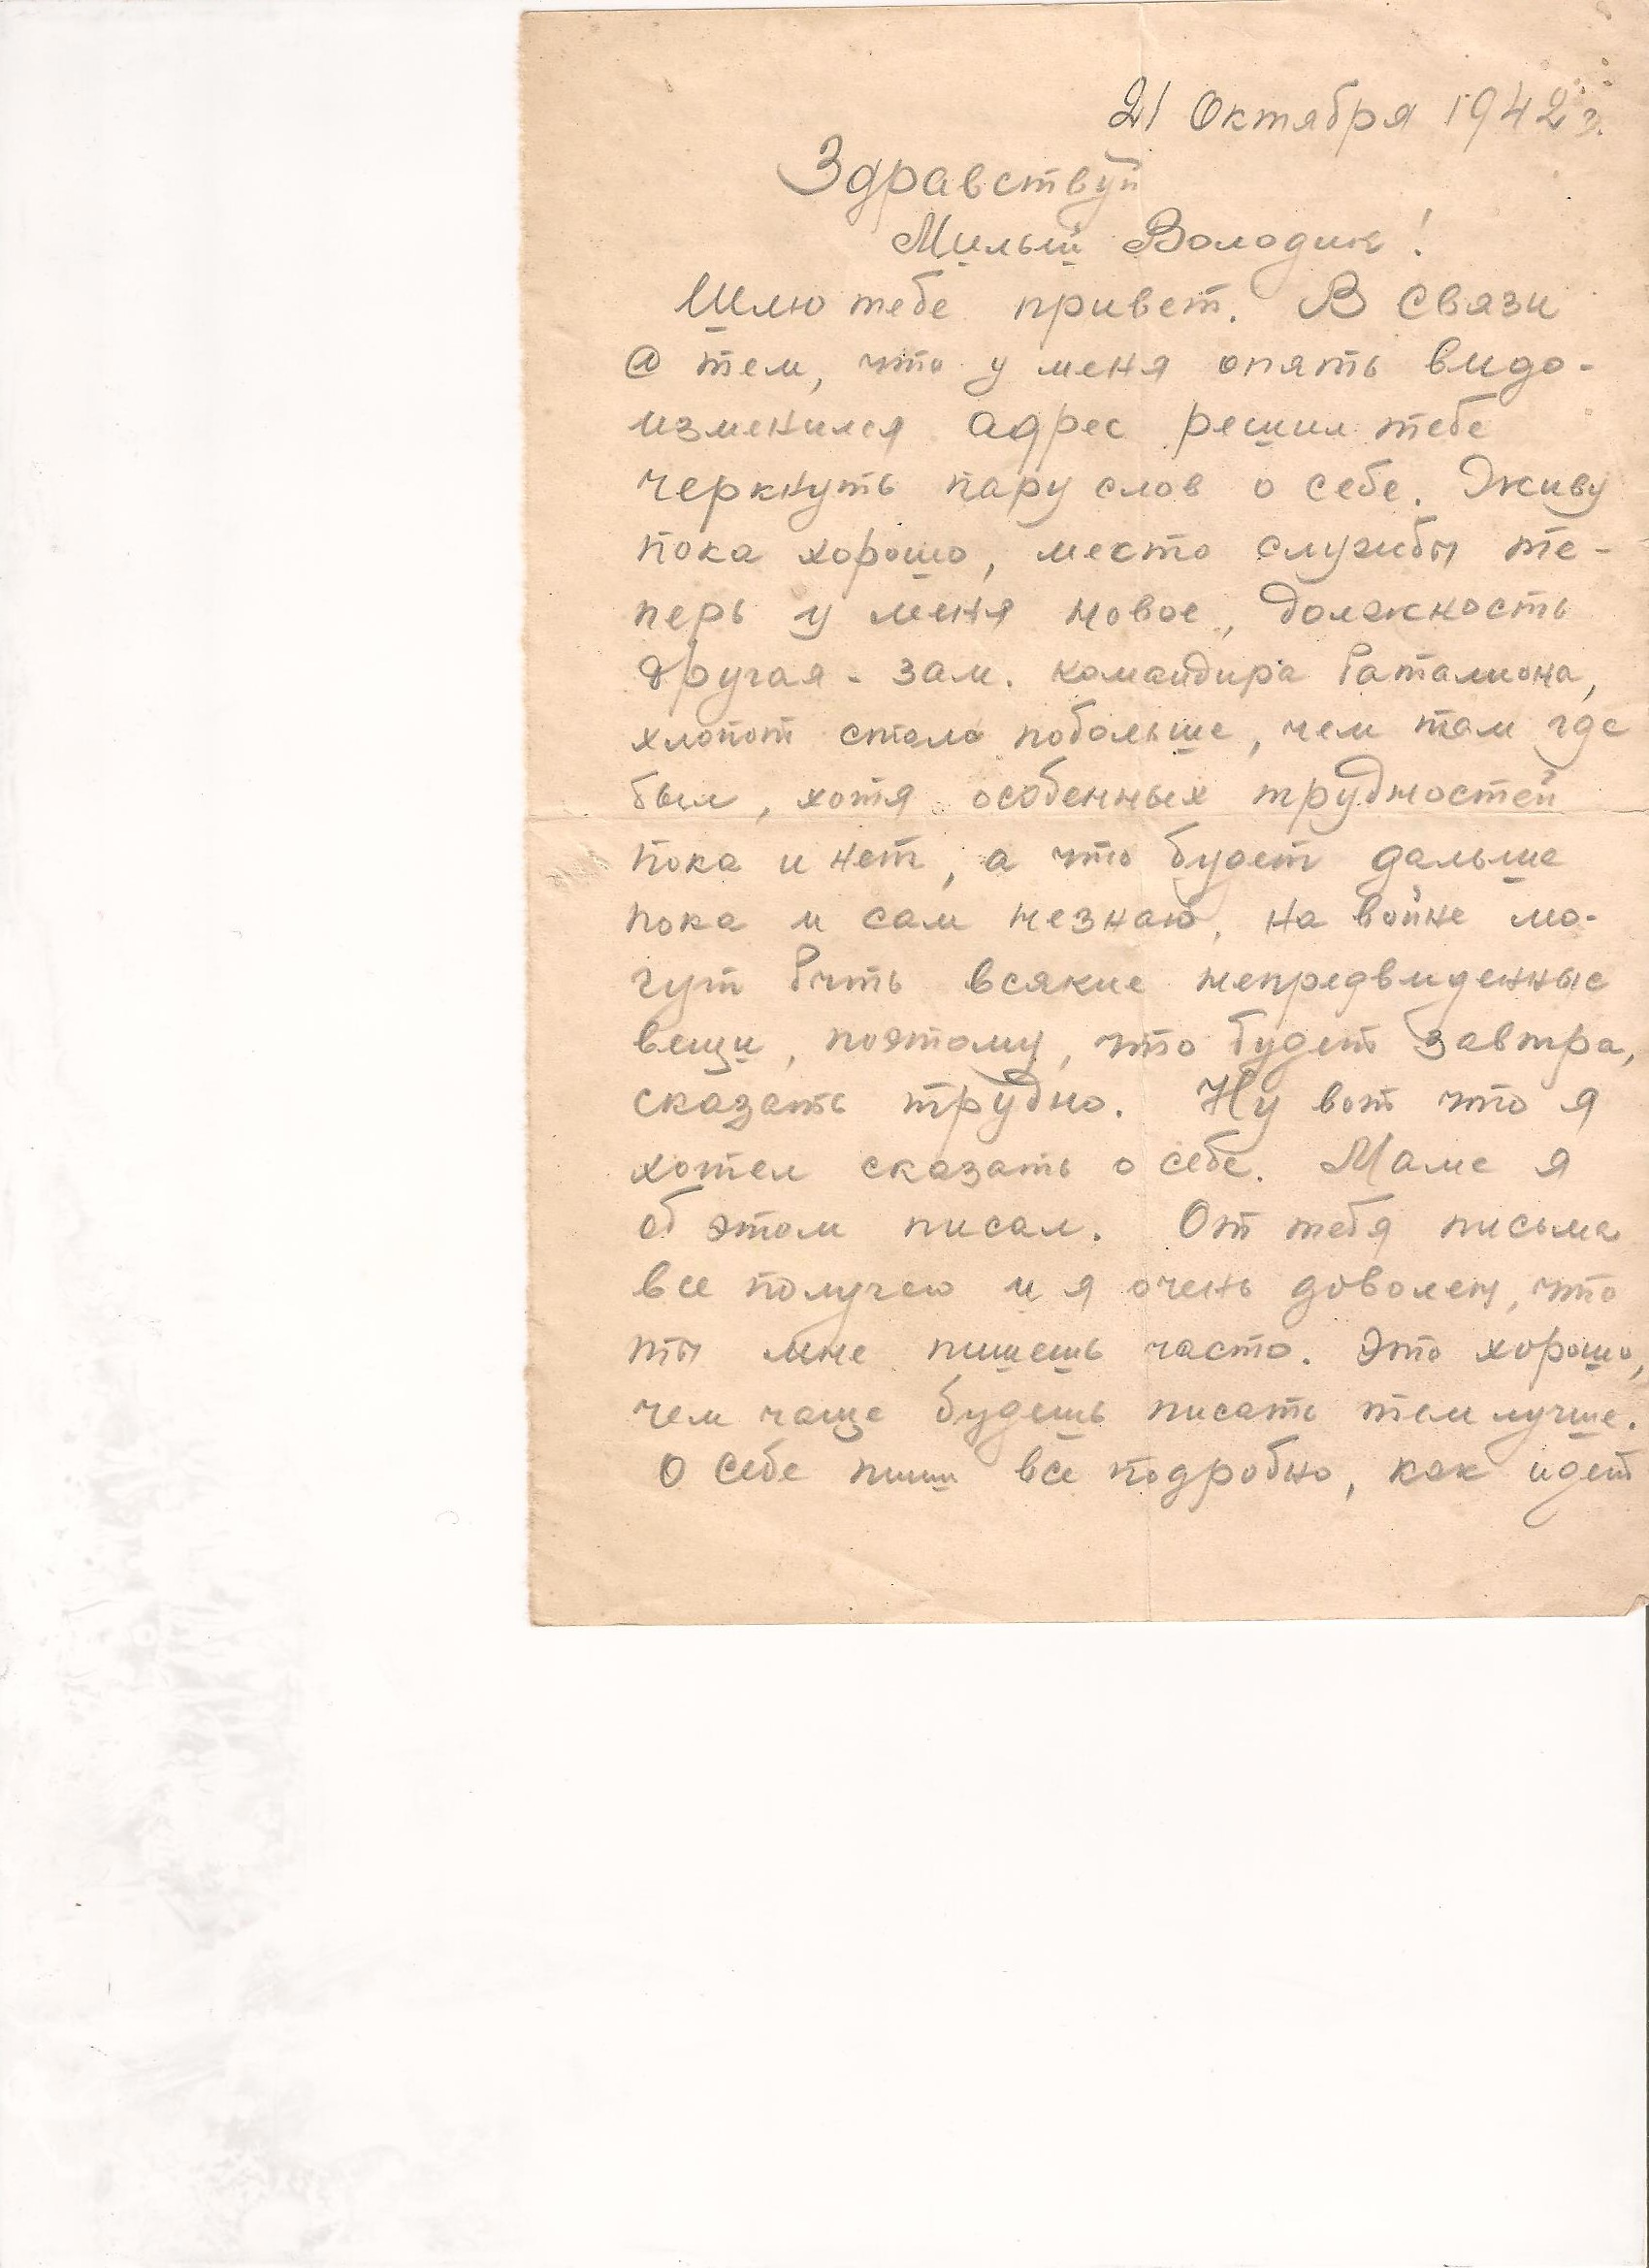 21 Октября 1942 г.
Здравствуй
Милый Володик!
Шлю тебе привет. В связи
с тем, что у меня опять видо-
изменился адрес решил тебе
черкнуть пару слов о себе. Живу
пока хорошо, место службы те-
перь у меня новое, должность
другая - зам. командира баталиона,
хлопот стало побольше, чем там где
был, хотя особенных трудностей
пока и нет, а что будет дальше
пока и сам незнаю, на войне мо-
гут быть всякие непредвиденные
вещи, поэтому, что будет завтра,
сказать трудно. Ну вот что я
хотел сказать о себе. Маме я
об этом писал. От тебя письма
все получаю и я очень доволен, что
ты мне пишешь часто. Это хорошо,
чем чаще будешь писать тем лучше.
О себе пиши все подробно, как идет